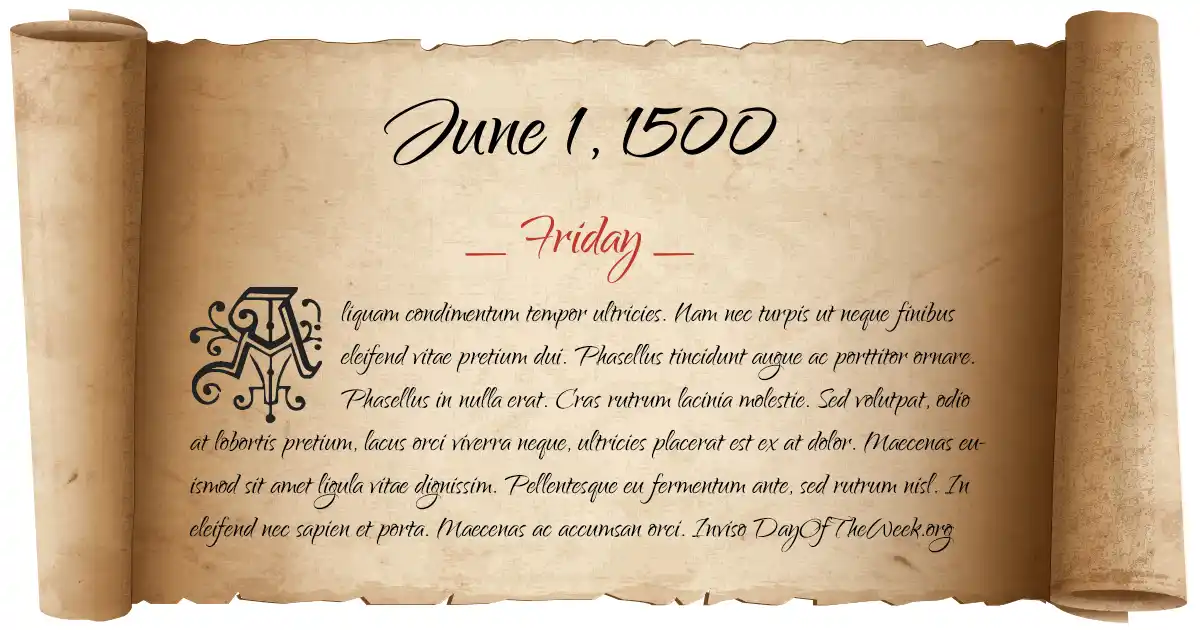 June 1, 1500
_ Friday _
Aliquam condimentum tempor ultricies. Nam nec turpis ut neque finibus
eleifend vitae pretium dui. Phasellus tincidunt augue ac porttitor ornare.
Phasellus in nulla erat. Cras rutrum lacinia molestie. Sed volutpat, odio
at lobortis pretium, lacus orci viverra neque, ultricies placerat est ex at dolor. Maecenas eu-
ismod sit amet ligula vitae dignissim. Pellentesque eu fermentum ante, sed rutrum nisl. In
eleifend nec sapien et porta. Maecenas ac accumsan orci. Inviso DayOfTheWeek.org